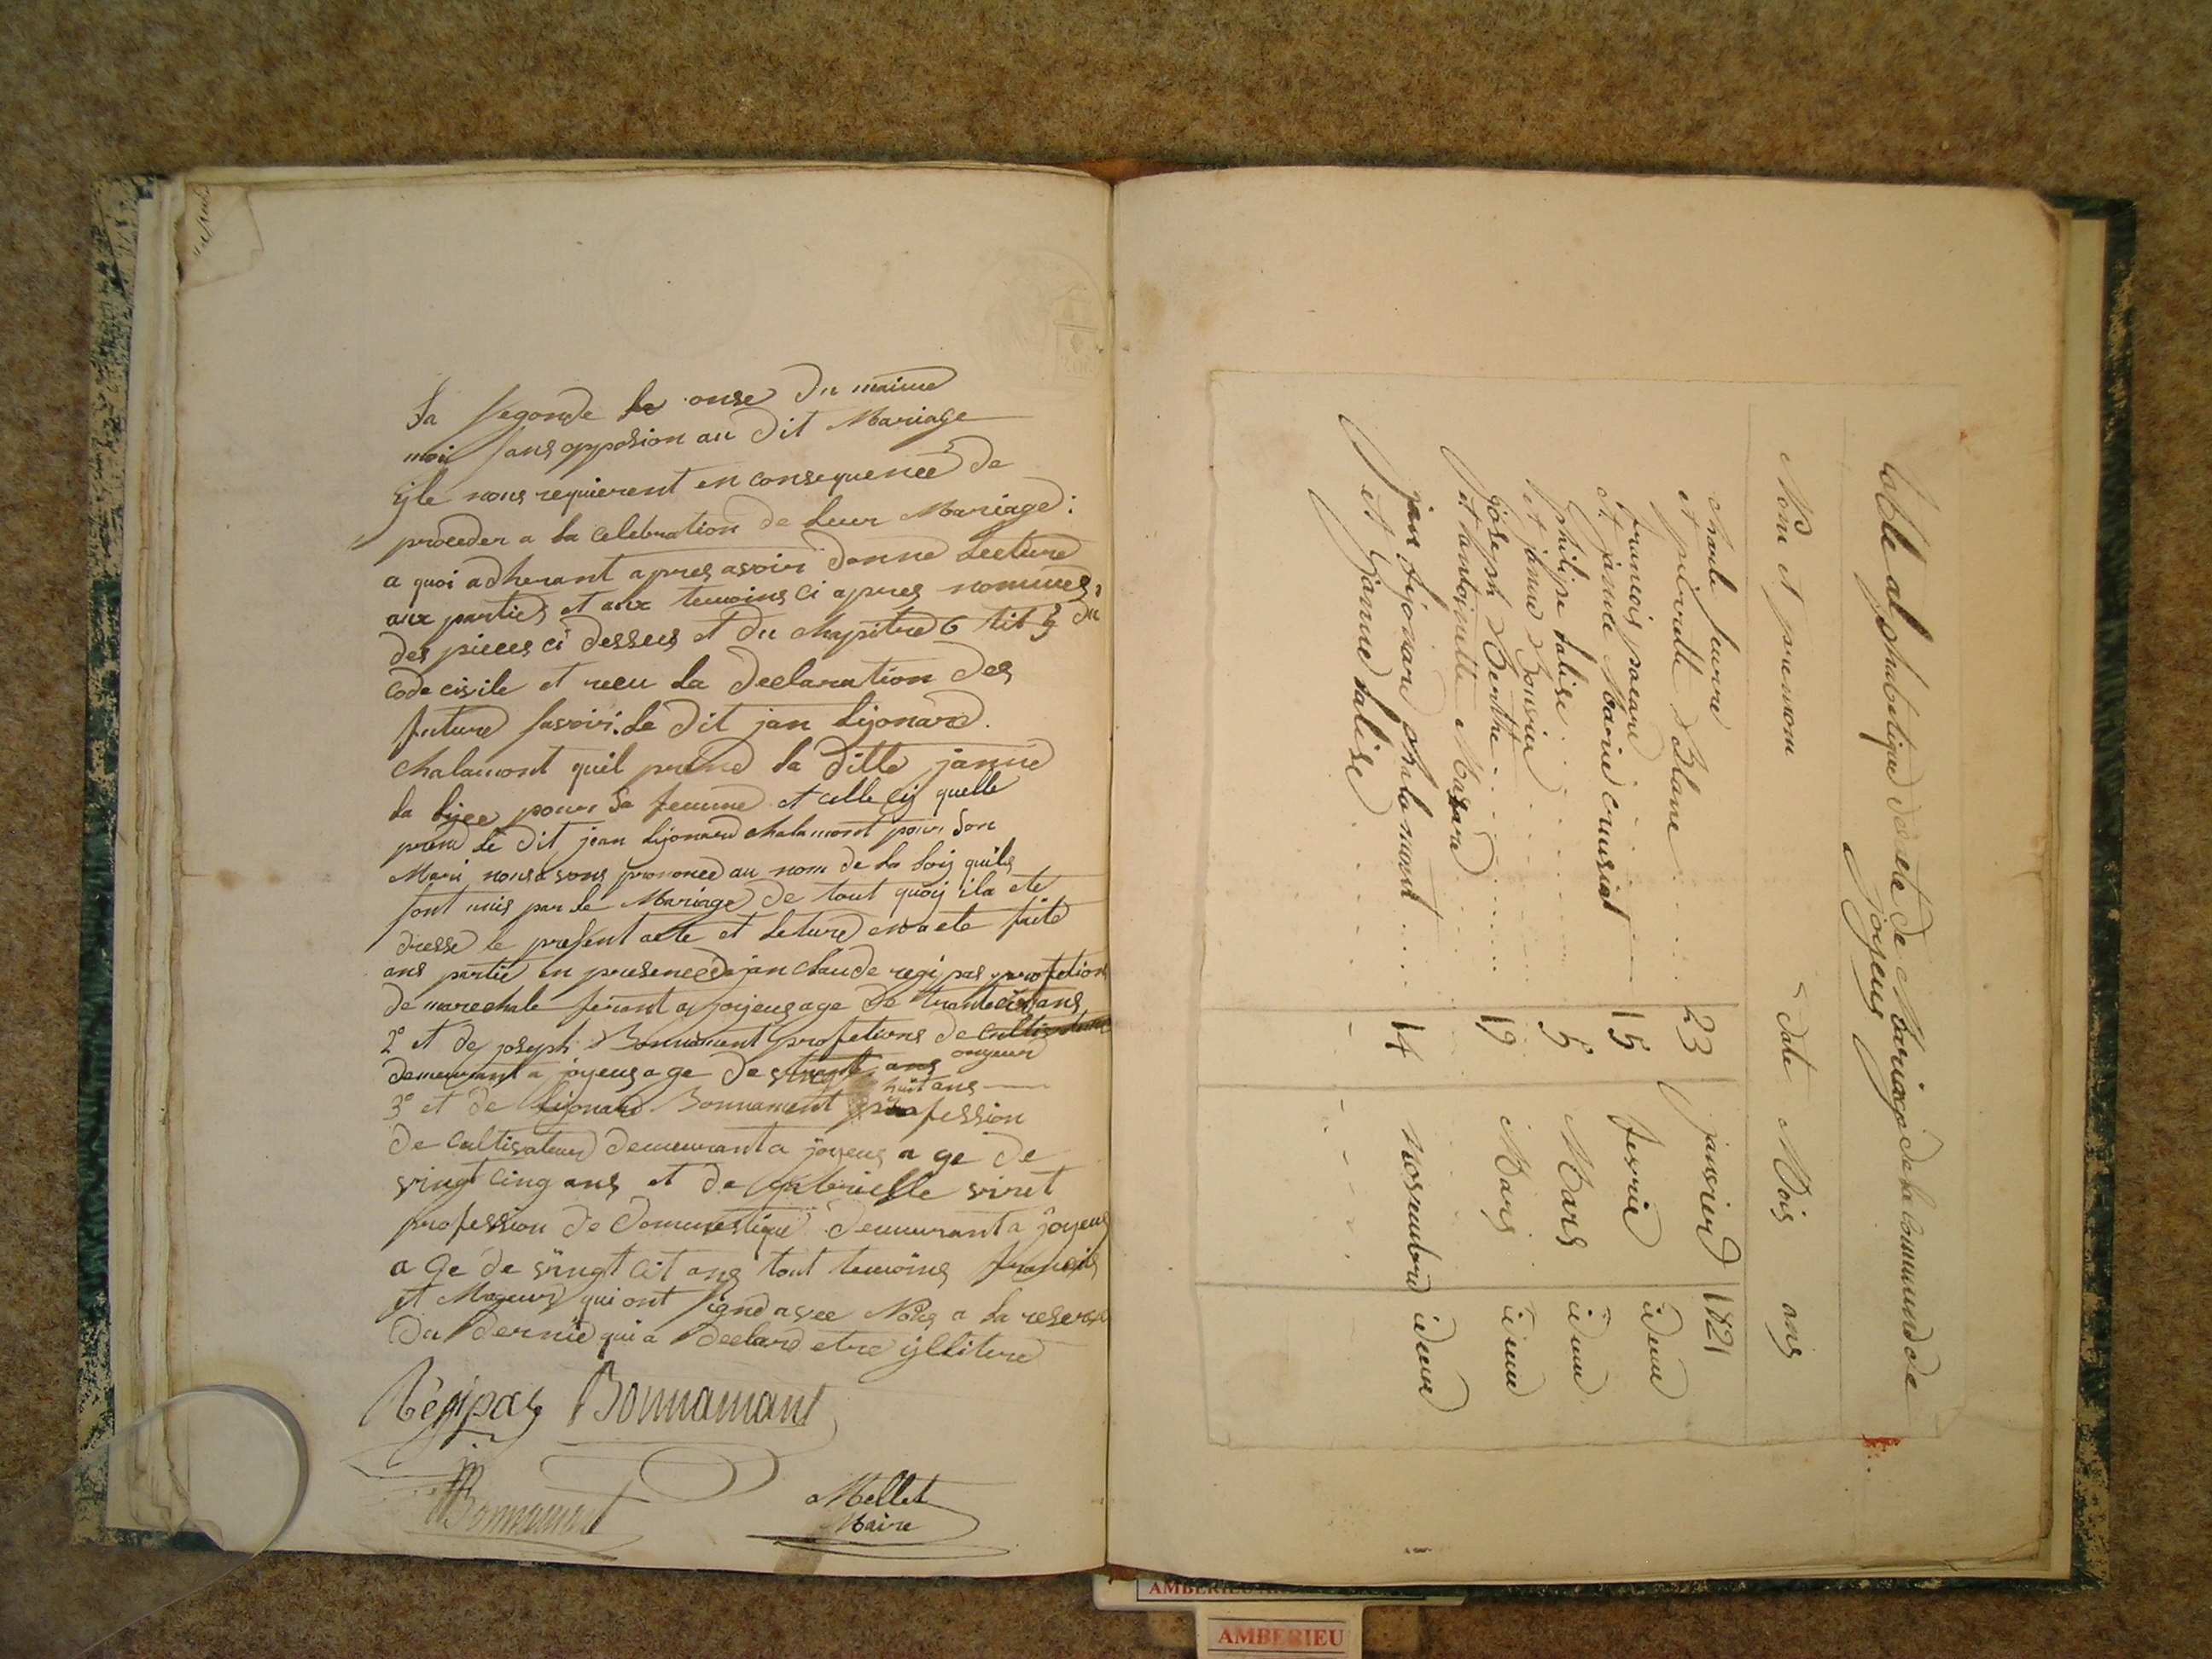 la segonde le onse du maime
moi sans opposion au dit Mariage
ijls nous requierent en consequence de
proceder a la celebration de leur Mariage :
a quoi adherant apres avoir donne lecture
aux parties et aux temoins ci apres nommes,
des pieces ci dessus et du chapitre 6 tit 5 du
code civile et recu la declaration des
future savoir. le dit jan lijonard.
chalamont quil prend la ditte janne
la lise pour sa femme et celle cij quelle
prend le dit jean lijonard chalamont pour son
Mari nous avons prononce au nom de la loij quils
sont unis par le Mariage de tout quoij ila ete
dresse le present acte et leture en a ete faite
aus partie en presence de jan claude regipas profetion
de marechale ferant a joyeus age de trante ans
2° et de joseph Bonnamant profetions de
demeurant a joyeus age de huit ans
3° et de lijonard Bonnament profession
de cultivateur demeurant a joyeus a ge de
vingt cinq ans et de gabrielle viret
profession de domestique demeurant a joyeus
a ge de vingt cit ans tout temoins francois
et Majeurs qui ont signe avec Nous a la reserve
du dernie qui a declare etre ijlliture
Régipas Bonnamant
Bonnamant
Mellet
Maire
table alphabetique des acte de Mariage de la commune de
joyeus
Nom et prenom date Mois ans
et pierrette Blanc . . . 23 janvier 1821
francois
et janne Marie cruisiat 15 fevrie idem
philipe lalise
et janne Bouvier 5 Mars idem
joseph Berthe
et antoinette Mazard 19 Mars idem
jan lijonard chalamont
et Janne lalise 14 novembre idem
AMBERIEU
AMBERIEU